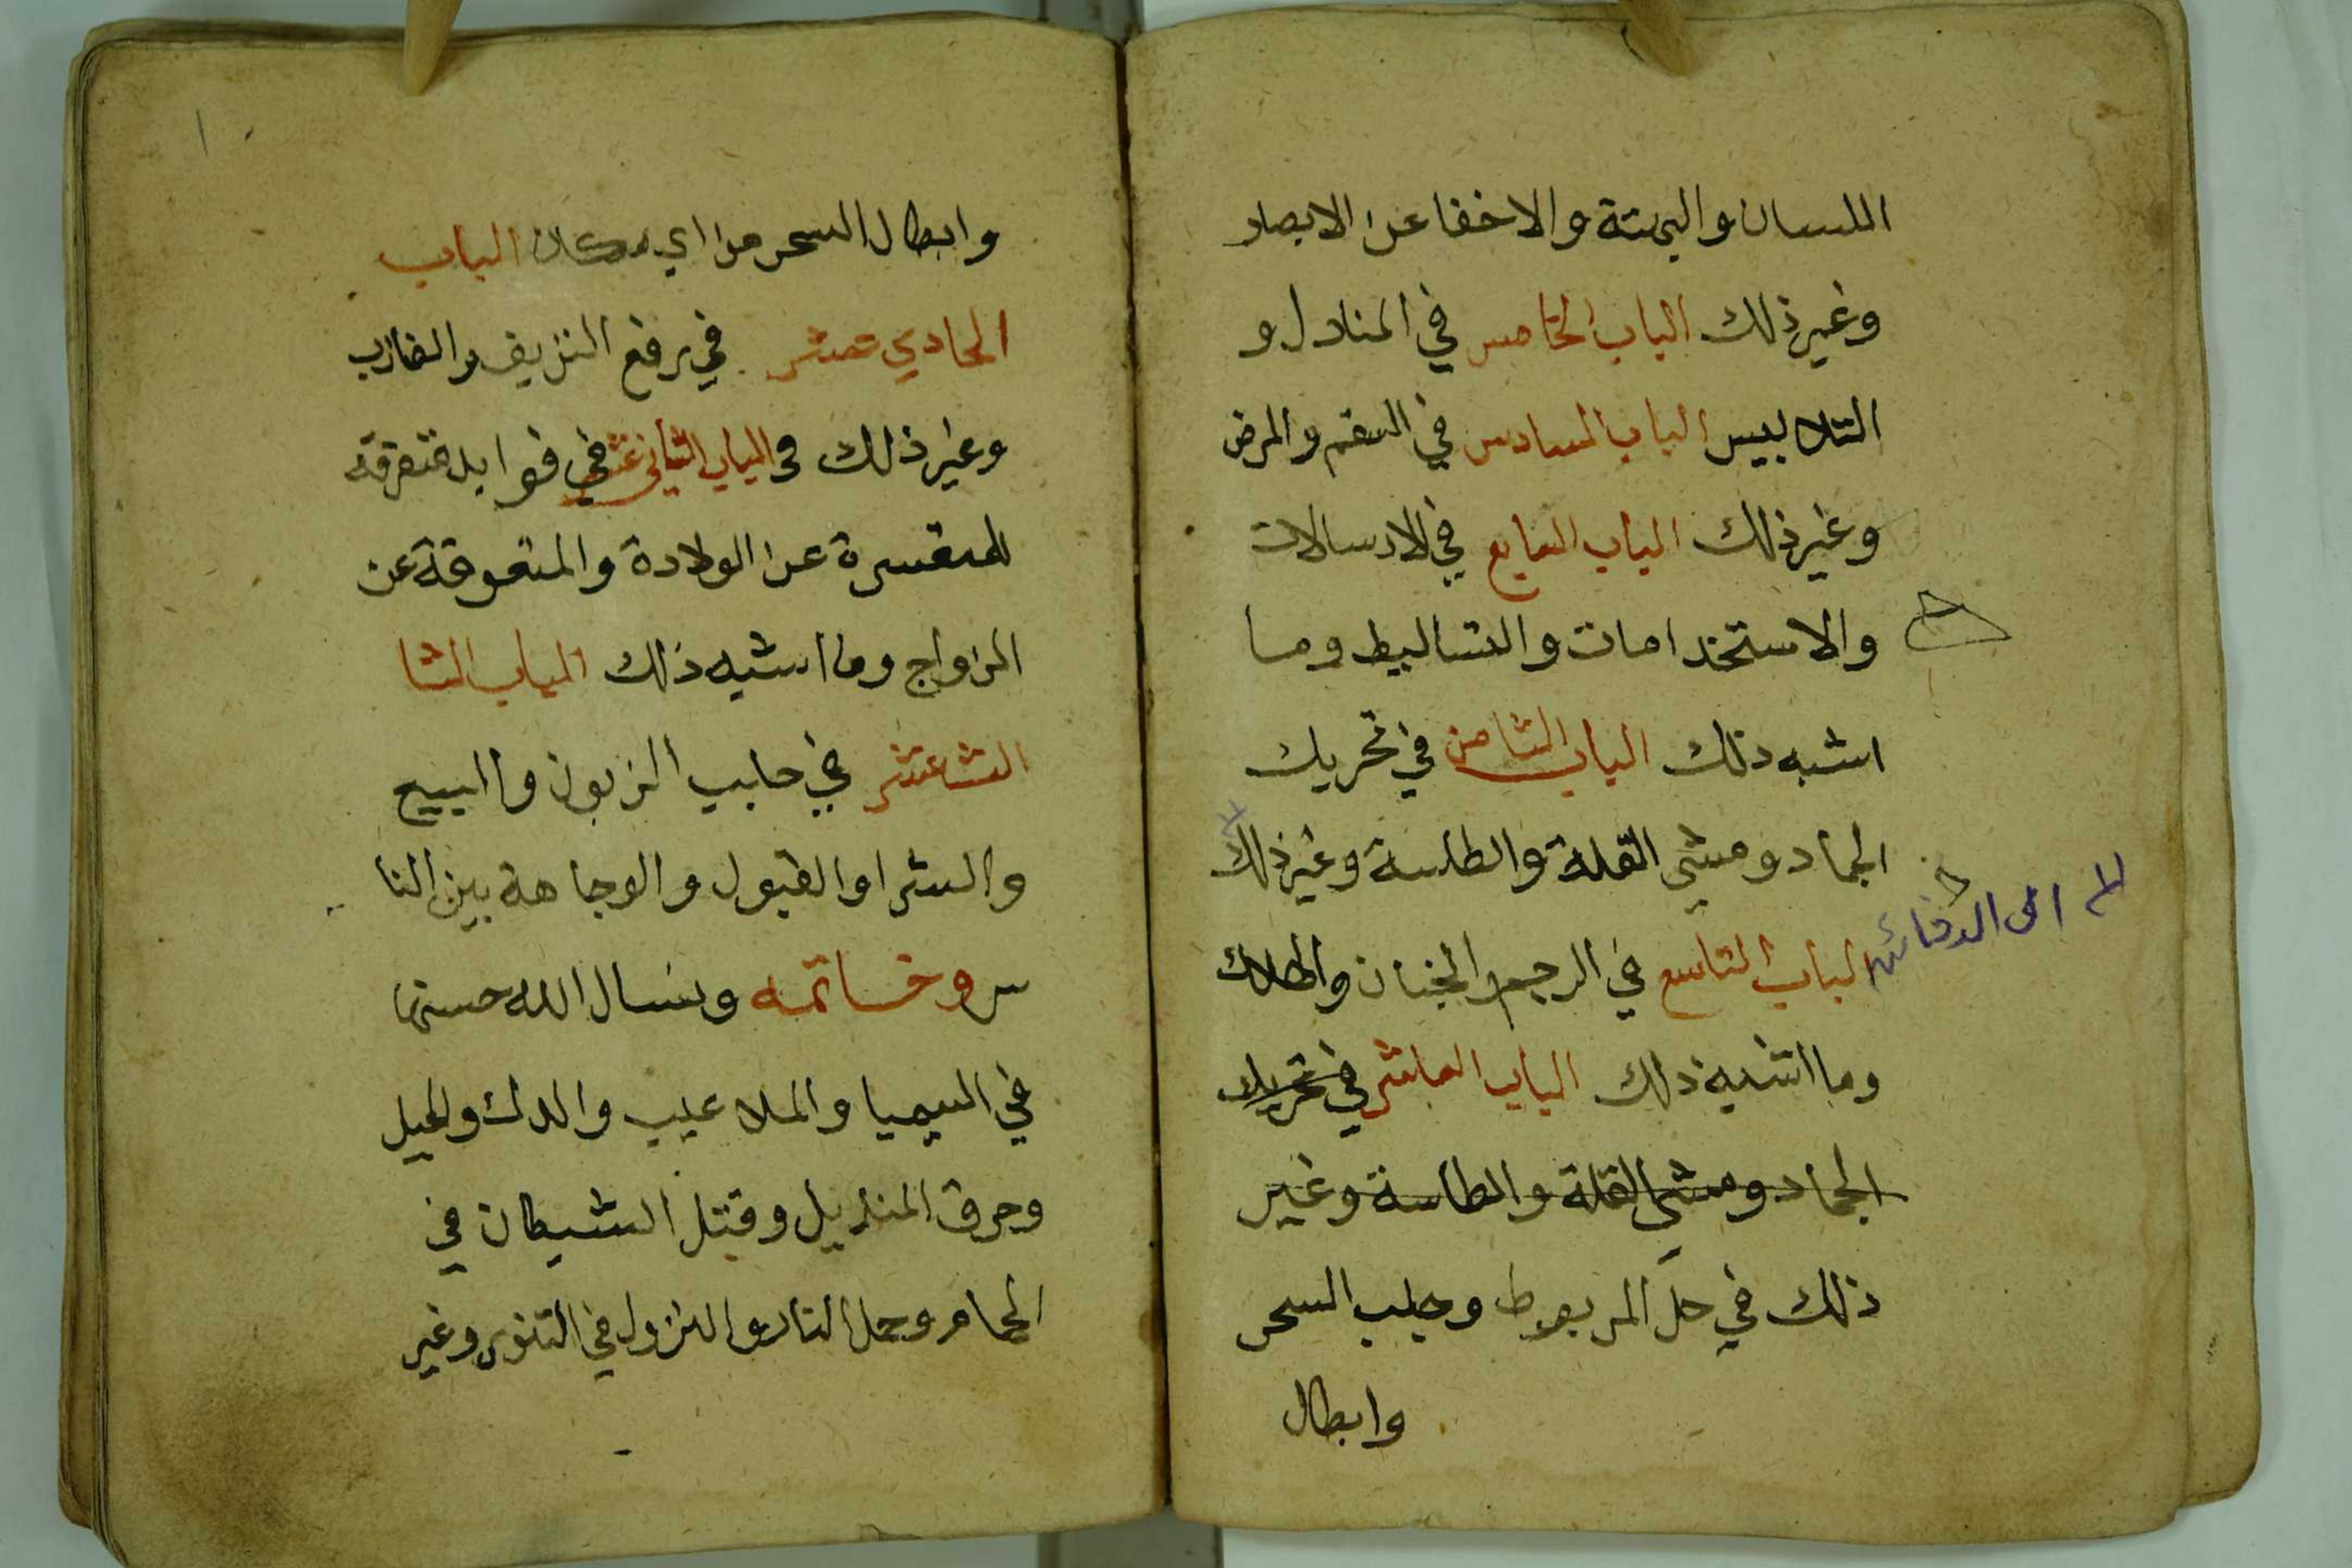 اللسان والهيتة والاخفا عن الابصار
وغير ذلك الباب الخامس في المنادل و
التلابيس الباب السادس في السقم والمرض
وغير ذلك الباب السابع في الارسالات
والاستخدامات والتساليط وما
اشبه ذلك الباب الثامن في تحريك
الجماد ومشي القلة والطاسة وغير ذلك
الى الدفائن
الباب التاسع في الرجم والخبنان والهلاك
وما اشبه ذلك الباب العاشر في تحريك
الجماد ومشي القلة والطاسة وغير
ذلك في حل المربوط وجلب السحر
وابطال
وابطال السحر من اي مكان الباب
الحادي عشر في رفع النزيف والضارب
وغير ذلك الباب الثاني عشر في فوايد متفرقه
للمتعسرة عن الولادة والمتعوقة عن
الزواج وما اشبه ذلك الباب الثا
لث عشر في جلب الزبون والبيع
والشرا والقبول والوجاهة بين النا
س وخاتمه ونسال الله حسنها
في السيميا والملاعيب والدك والحيل
وحرق المنديل وقتل الشيطان في
الحمام وحمل النار والنزول في التنور وغير